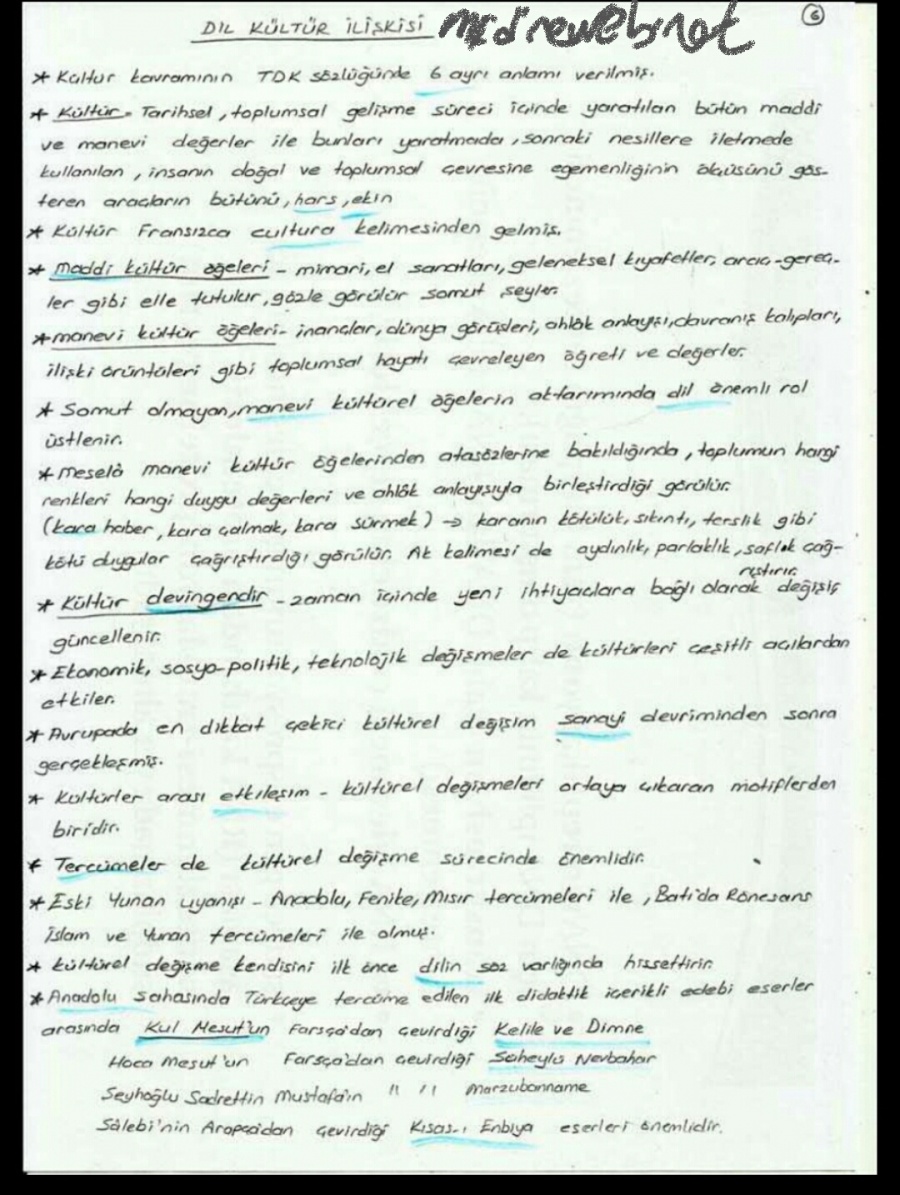 DİL KÜLTÜR İLİŞKİSİ
6
* Kültür kavramının TDK sözlüğünde 6 ayrı anlamı verilmiş.
* Kültür = Tarihsel, toplumsal gelişme süreci içinde yaratılan bütün maddi
ve manevi değerler ile bunları yaratmada, sonraki nesillere iletmede
kullanılan, insanın doğal ve toplumsal çevresine egemenliğinin ölçüsünü gös-
teren araçların bütünü, hars, ekin
* Kültür Fransızca cultura kelimesinden gelmiş.
* Maddi kültür öğeleri - mimari, el sanatları, geleneksel kıyafetler, araç-gereç-
ler gibi elle tutulur, gözle görülür somut şeyler.
* manevi kültür öğeleri - inançlar, dünya görüşleri, ahlâk anlayışı, davranış kalıpları,
ilişki örüntüleri gibi toplumsal hayatı çevreleyen öğreti ve değerler.
* Somut olmayan, manevi kültürel öğelerin aktarımında dil önemli rol
üstlenir.
* Meselâ manevi kültür öğelerinden atasözlerine bakıldığında, toplumun hangi
renkleri hangi duygu değerleri ve ahlâk anlayışıyla birleştirdiği görülür.
(kara haber, kara çalmak, kara sürmek) → karanın kötülük, sıkıntı, terslik gibi
kötü duygular çağrıştırdığı görülür. Ak kelimesi de aydınlık, parlaklık, saflık çağ-
rıştırır.
* Kültür devingendir - zaman içinde yeni ihtiyaçlara bağlı olarak değişiş
güncellenir.
* Ekonomik, sosyo-politik, teknolojik değişmeler de kültürleri çeşitli açılardan
etkiler.
* Avrupada en dikkat çekici kültürel değişim sanayi devriminden sonra
gerçekleşmiş.
* Kültürler arası etkileşim - kültürel değişmeleri ortaya çıkaran motiflerden
biridir.
* Tercümeler de kültürel değişme sürecinde önemlidir.
* Eski Yunan uyanışı - Anadolu, Fenike, Mısır tercümeleri ile, Batı'da Rönesans
İslam ve Yunan tercümeleri ile olmuş.
* kültürel değişme kendisini ilk önce dilin söz varlığında hissettirir.
* Anadolu sahasında Türkçeye tercüme edilen ilk didaktik içerikli edebi eserler
arasında Kul Mesut'un Farsça'dan çevirdiği Kelile ve Dimne
Hoca Mesut'un Farsça'dan çevirdiği Süheylü Nevbahar
Şeyhoğlu Sadrettin Mustafa'ın " " Marzubanname
Sâlebi'nin Arapça'dan çevirdiği Kısas-ı Enbiya eserleri önemlidir.